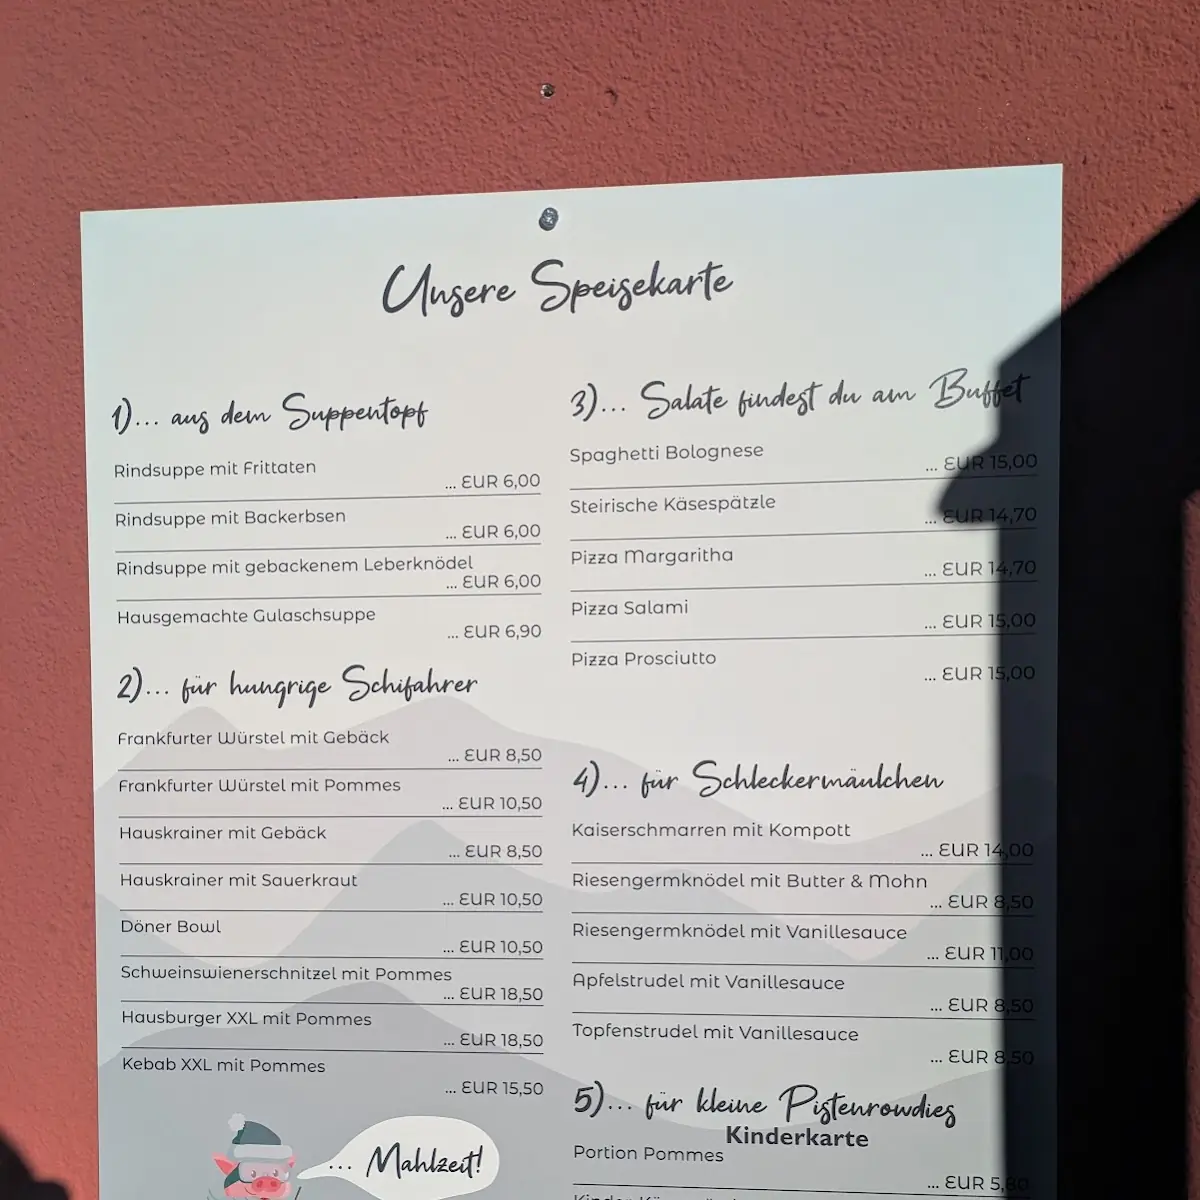 Unsere Speisekarte
1)... aus dem Suppentopf
Rindsuppe mit Frittaten
... EUR 6,00
Rindsuppe mit Backerbsen
... EUR 6,00
Rindsuppe mit gebackenem Leberknödel
... EUR 6,00
Hausgemachte Gulaschsuppe
... EUR 6,90
2)... für hungrige Schifahrer
Frankfurter Würstel mit Gebäck
... EUR 8,50
Frankfurter Würstel mit Pommes
... EUR 10,50
Hauskrainer mit Gebäck
... EUR 8,50
Hauskrainer mit Sauerkraut
... EUR 10,50
Döner Bowl
... EUR 10,50
Schweinswienerschnitzel mit Pommes
... EUR 18,50
Hausburger XXL mit Pommes
... EUR 18,50
Kebab XXL mit Pommes
... EUR 15,50
... Mahlzeit!
3)... Salate findest du am Buffet
Spaghetti Bolognese
... EUR 15,00
Steirische Käsespätzle
... EUR 14,70
Pizza Margaritha
... EUR 14,70
Pizza Salami
... EUR 15,00
Pizza Prosciutto
... EUR 15,00
4)... für Schleckermäulchen
Kaiserschmarren mit Kompott
... EUR 14,00
Riesengermknödel mit Butter & Mohn
... EUR 8,50
Riesengermknödel mit Vanillesauce
... EUR 11,00
Apfelstrudel mit Vanillesauce
... EUR 8,50
Topfenstrudel mit Vanillesauce
... EUR 8,50
5)... für kleine Pistenrowdies
Kinderkarte
Portion Pommes
... EUR 5,80